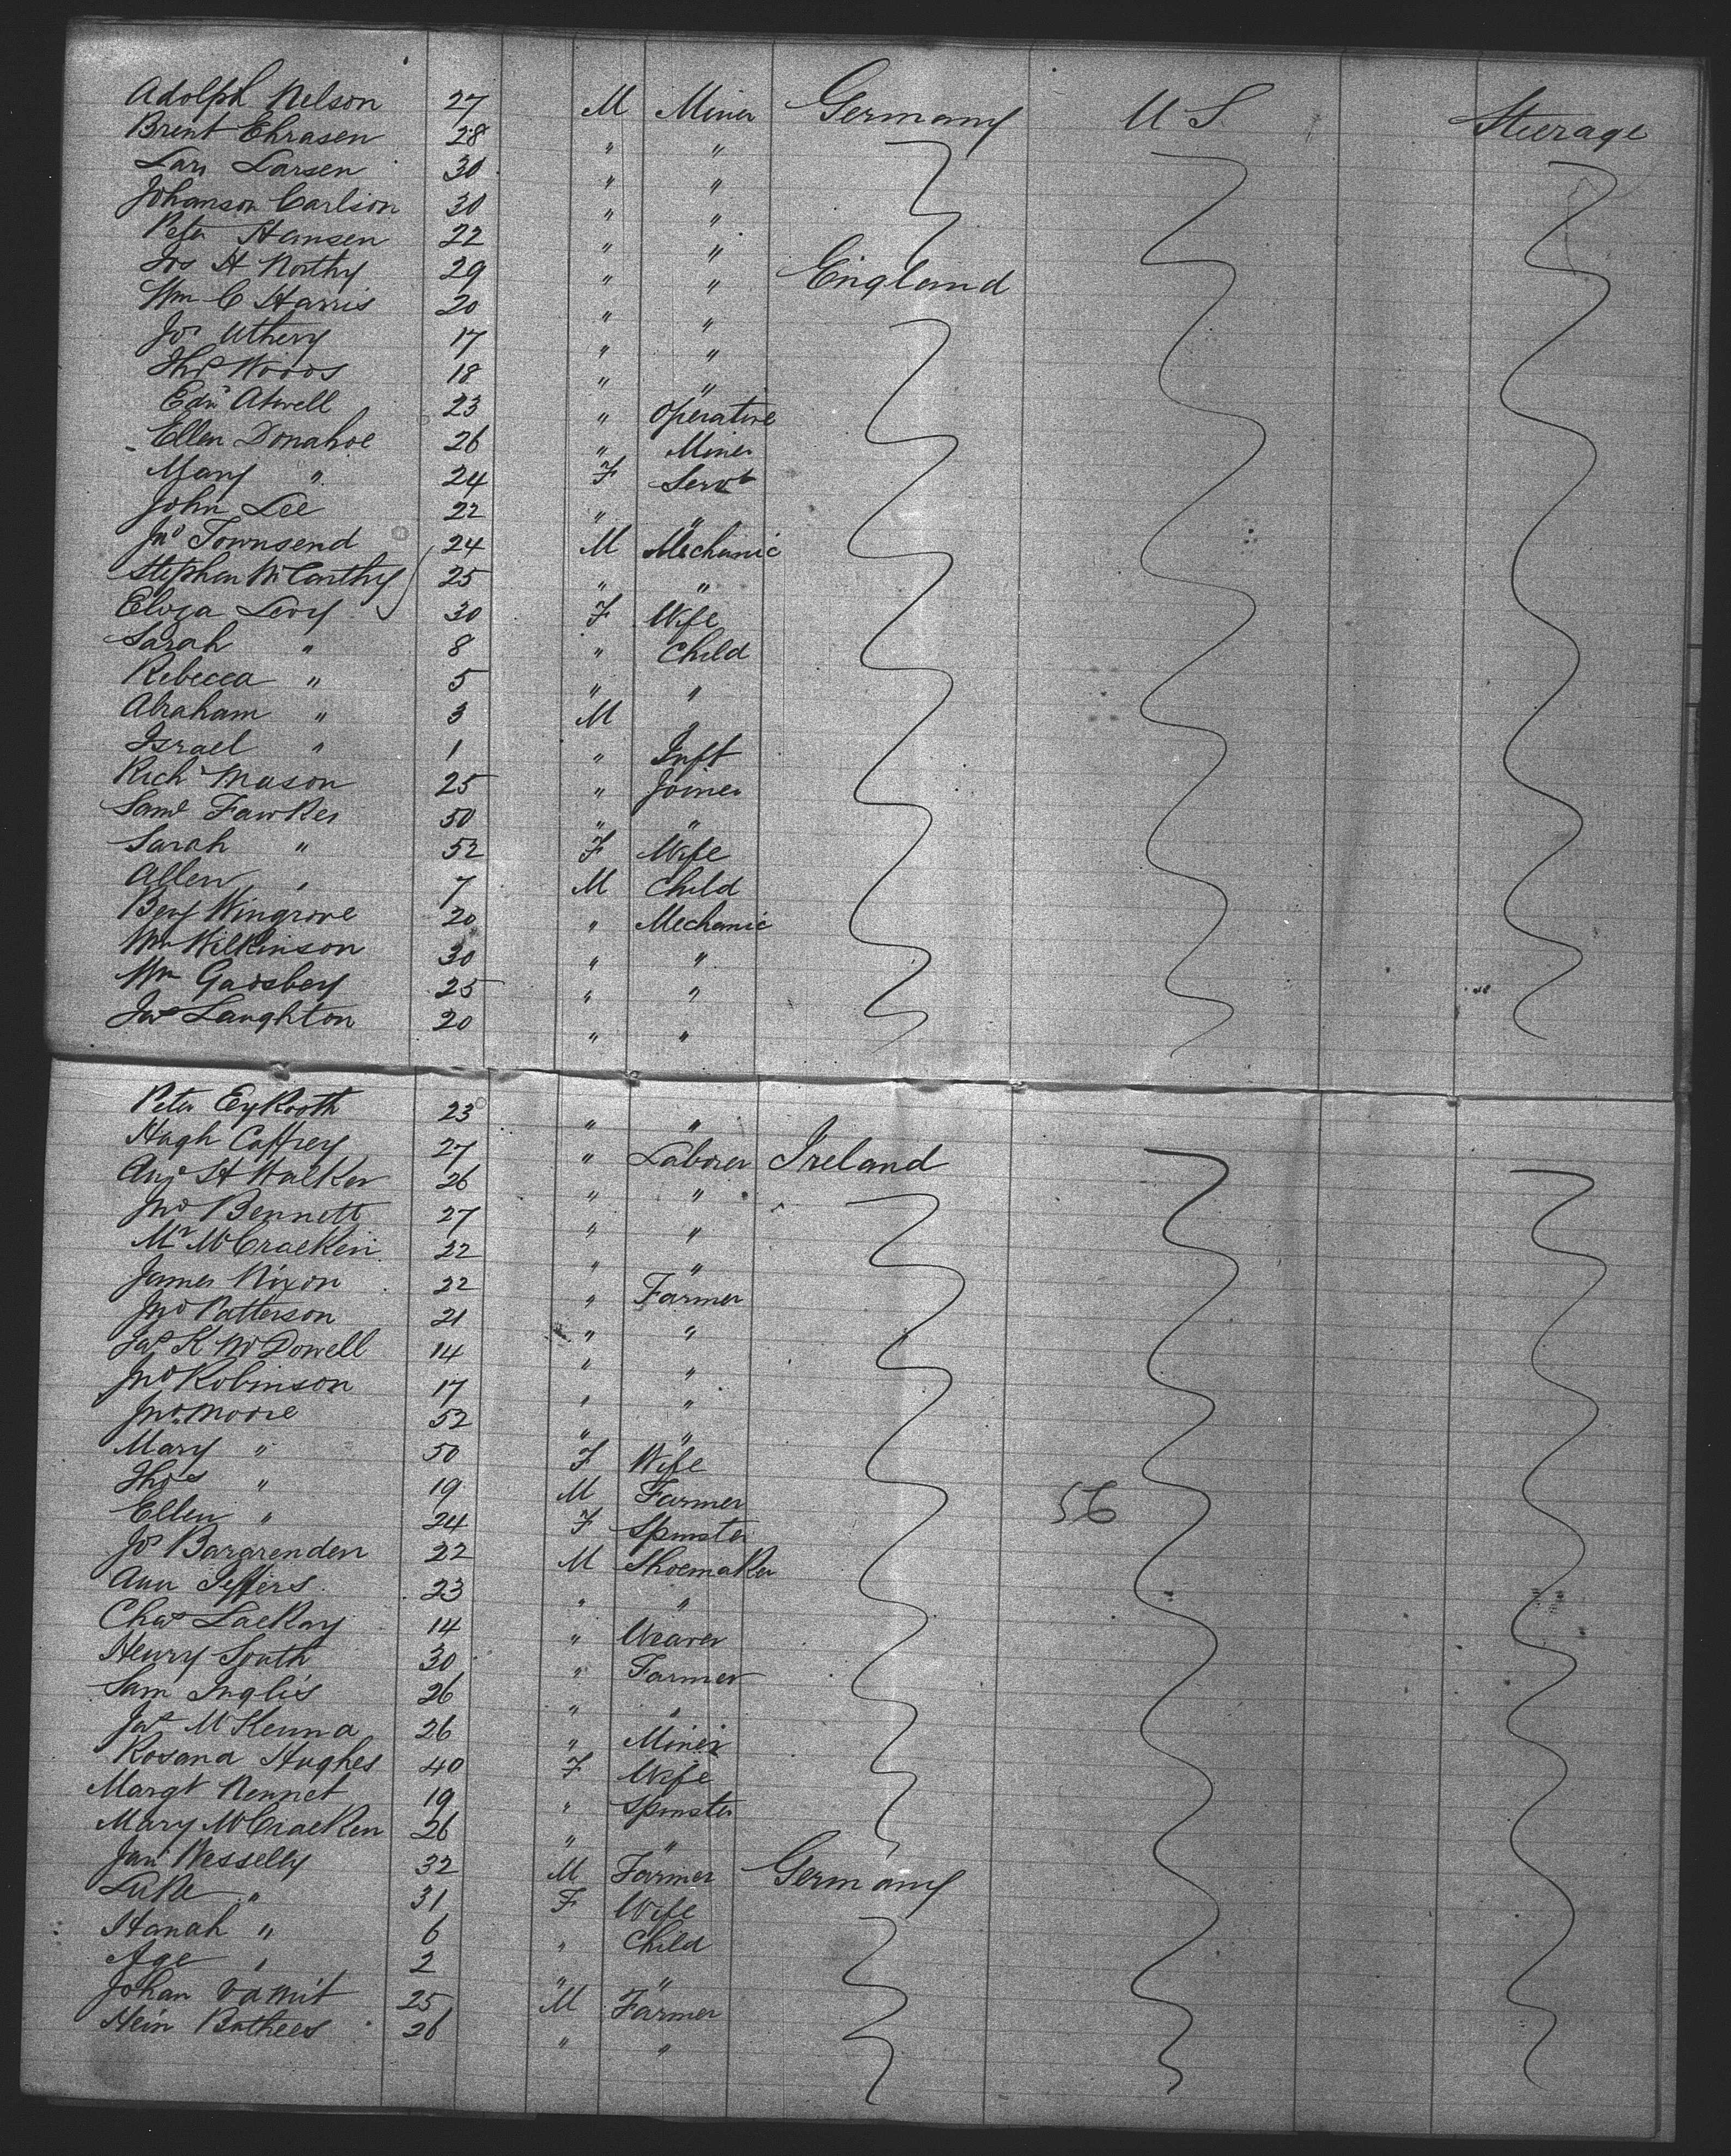 Adolph Nelson 27 M Miner Germany U S. Steerage
Brent Ehrasen 28 " "
Lars Larsen 30 " "
Johanson Carlson 30 " "
Peter Hansen 22 " "
Jos H Northy 29 " " England
Wm C Harris 20 " "
Jos Uthery 17 " "
Thos Woods 18 " "
Edn Atwell 23 " Operative
Ellen Donahoe 26 " Miner
Mary " 24 F Servt
John Lee 22 " "
Jno Townsend 24 M Mechanic
Stephen McCarthy 25 " "
Eliza Levy 30 F Wife
Sarah " 8 " Child
Rebecca " 5 " "
Abraham " 3 M
Israel " 1 " Inft
Richd Mason 25 " Joiner
Saml Fawkes 50 " "
Sarah " 52 F Wife
Allen " 7 M Child
Benj Wingrove 20 " Mechanic
Wm Wilkinson 30 " "
Wm Gadsbey 25 " "
Jas Laughton 20 " "
Peter Eykooth 23 " "
Hugh Caffrey 27 " Laborer Ireland
And H Walker 26 " "
Jno Bennett 27 " "
Mr McCracken 22 " "
James Nixon 22 " Farmer
Jno Patterson 21 " "
Jas K McDowell 14 " "
Jno Robinson 17 " "
Jno Moore 52 " "
Mary " 50 F Wife
Thos " 19 M Farmer 56
Ellen " 24 F Spinster
Jos Bararenden 22 M Shoemaker
Ann Jeffers 23 " "
Chas Lackay 14 " Weaver
Henry South 30 " Farmer
Sam Inglis 26 " "
Jas McKenna 26 " Miner
Rosana Hughes 40 F Wife
Margt Nennet 19 " Spinster
Mary McCracken 26 " "
Jan Wesselly 32 M Farmer Germany
Luke " 31 F Wife
Hanah " 6 " Child
Age " 2 " "
Johan 25 M Farmer
Hein Bathees 26 " "